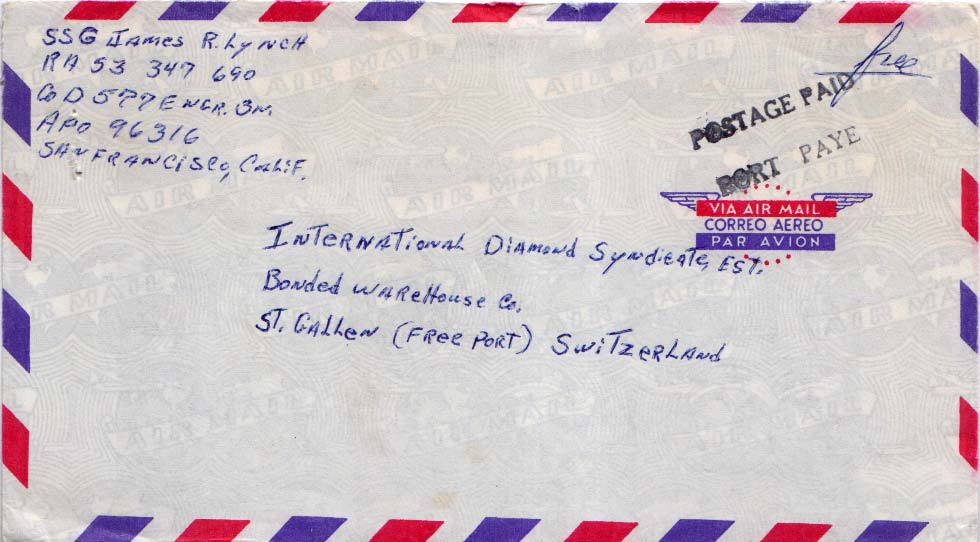 SSG James R. Lynch
RA 53 347 690
Co D 577 Engr. Bn.
APO 96316
San Francisco, Calif.
free
POSTAGE PAID
PORT PAYE
VIA AIR MAIL
CORREO AEREO
PAR AVION
International Diamond Syndicate, Est.
Bonded Warehouse Co.
St. Gallen (Free Port) Switzerland